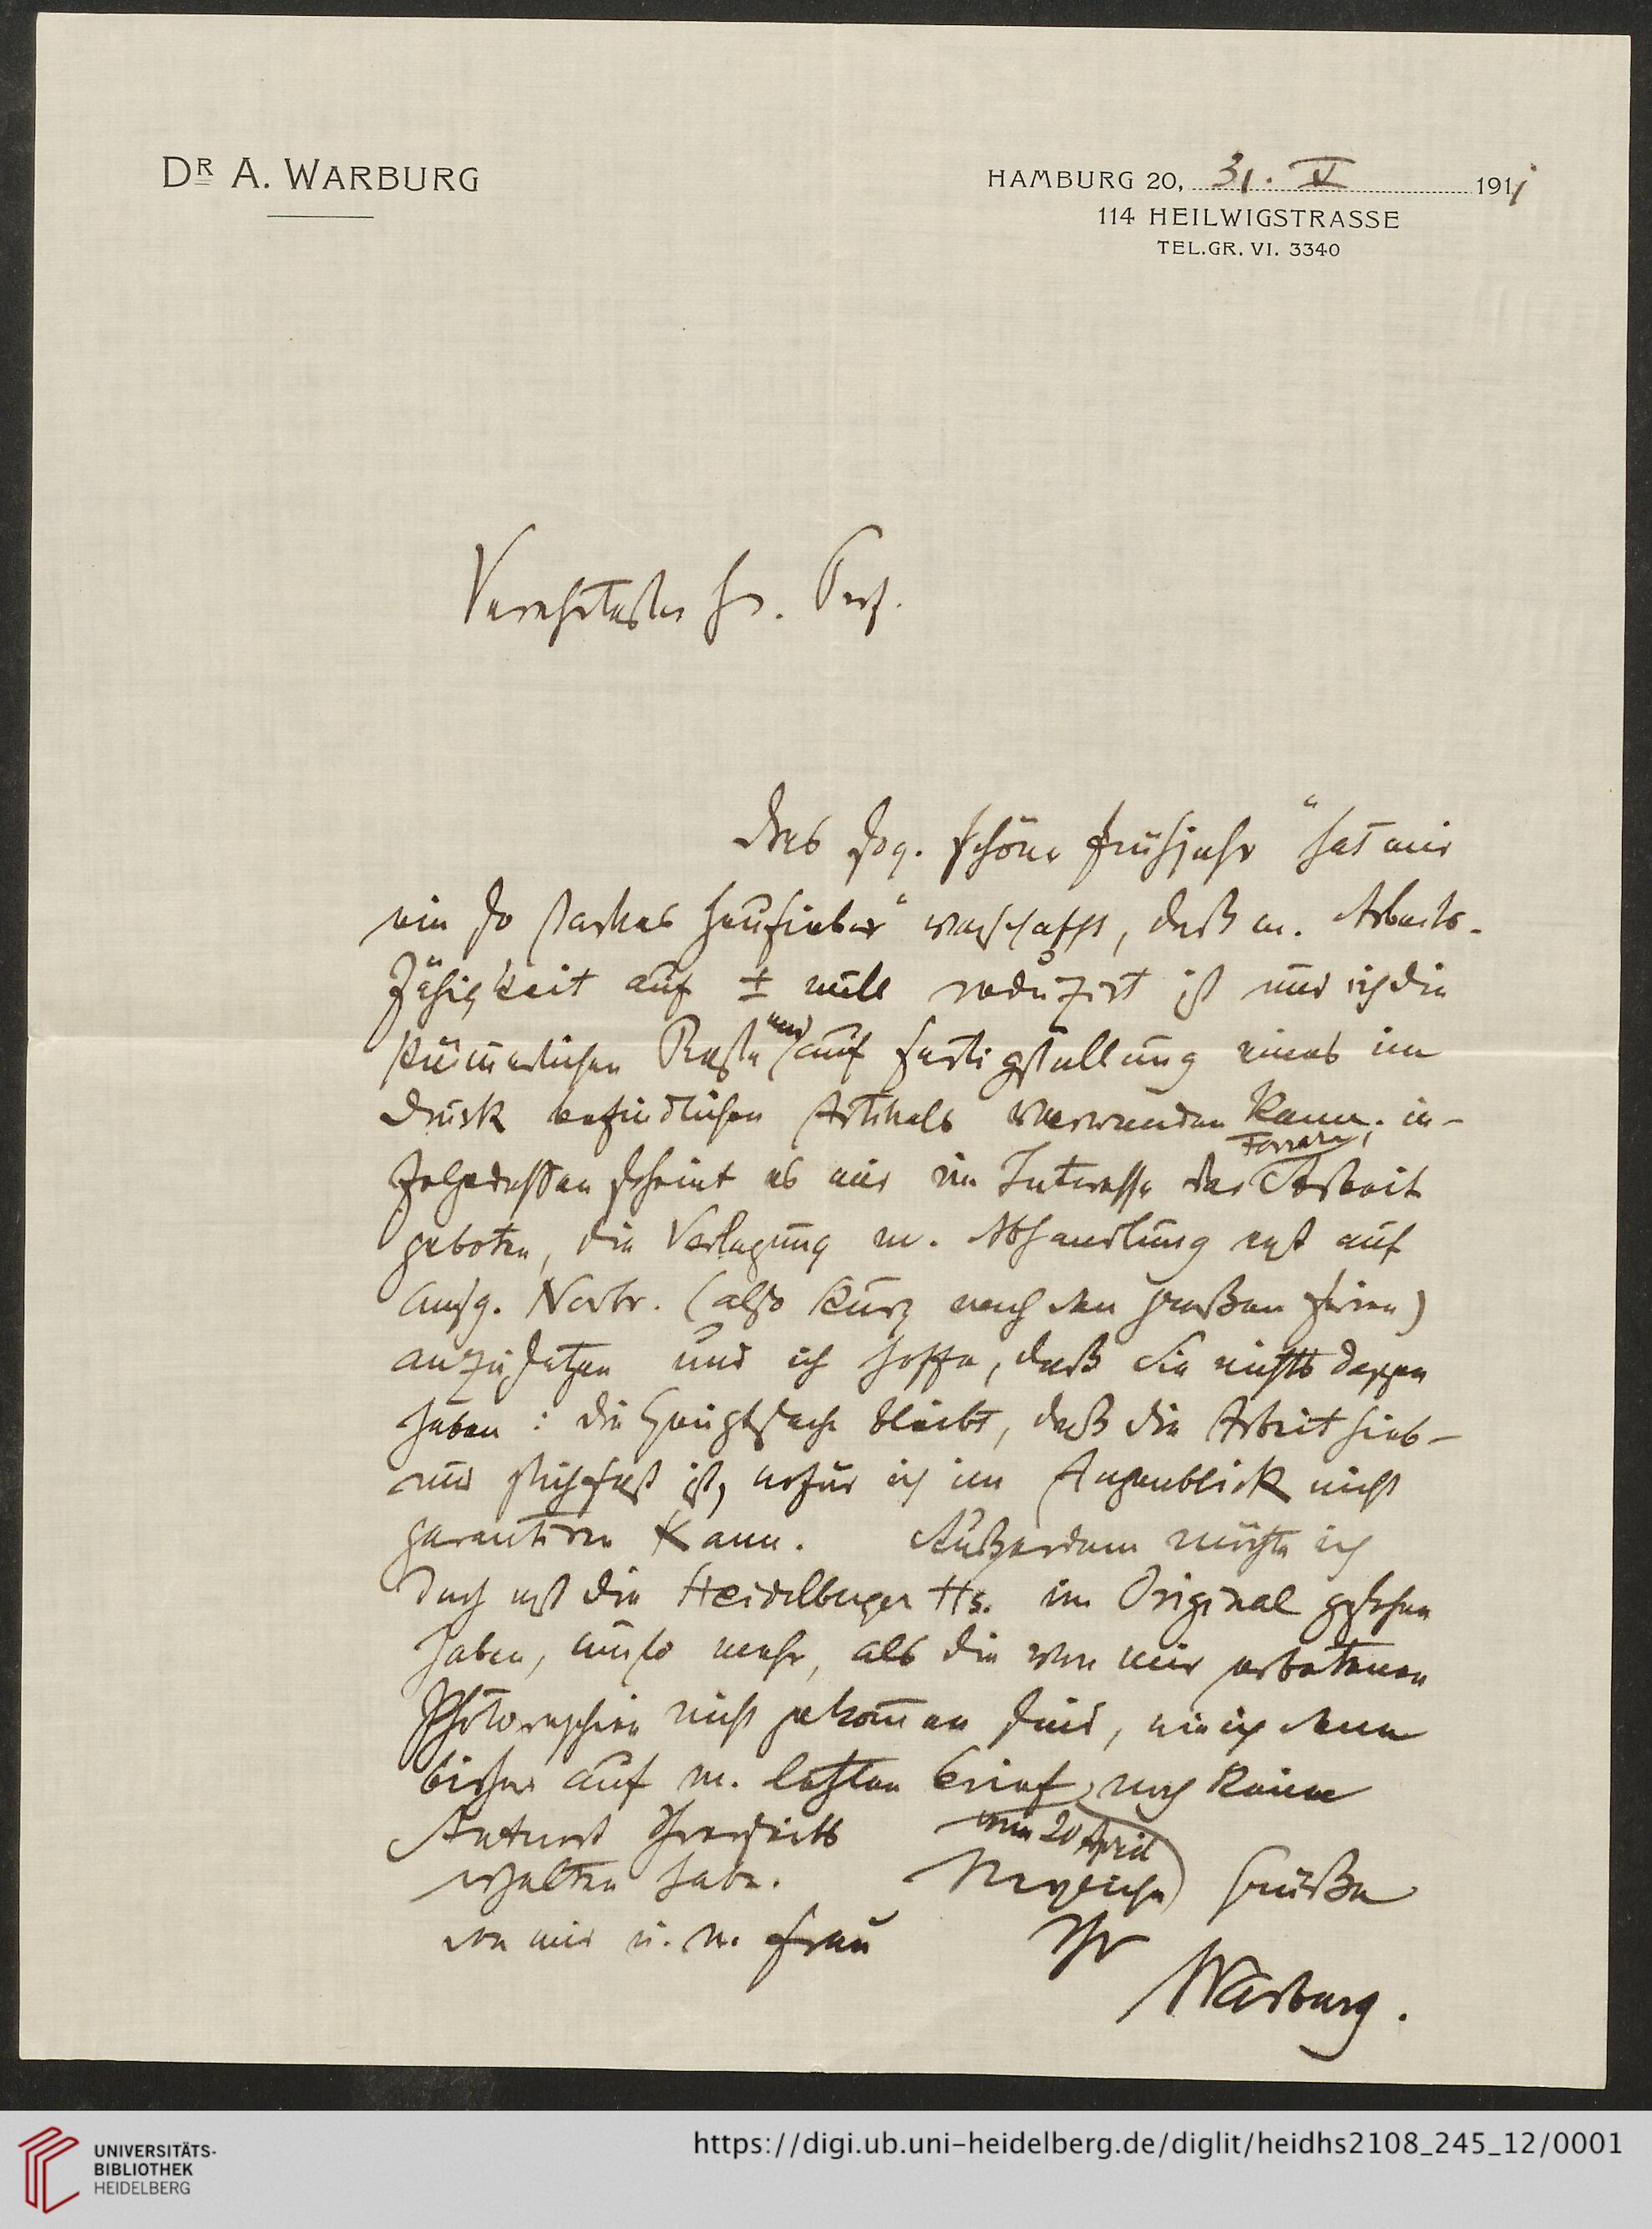 DR A. WARBURG
HAMBURG 20, 31. V 1911
114 HEILWIGSTRASSE
TEL.GR. VI. 3340
Verehrtester Hr. Prof.
Das sog. schöne Frühjahr" hat mir
ein so starkes Heufieber" verschafft, daß m. Arbeits-
fähigkeit auf ± null reduzirt ist und ich die
kümmerlichen Reste nur auf Fertigstellung eines im
Druck befindlichen Artikels verwenden kann; in-
folgedessen scheint es mir im Interesse der Ferrara Arbeit
geboten, die Vorlegung m. Abhandlung erst auf
Anfg. Novbr. (also kurz nach den großen Ferien)
anzusetzen und ich hoffe, daß Sie nichts dagegen
haben: die Hauptsache bleibt, daß die Arbeit hieb-
und stichfest ist, wofür ich im Augenblick nicht
garantiren kann. Außerdem möchte ich
doch erst die Heidelberger Hs. im Original gesehen
haben, umso mehr, als die von mir erbetenen
Photographien nicht gekommen sind, wie ich denn
bisher auf m. letzten Brief noch keine
vom 20 April
Antwort Ihrerseits
erhalten habe. Herzliche Grüße
von mir u. m. Frau Ihr
Warburg.
UNIVERSITÄTS-
BIBLIOTHEK
HEIDELBERG
https://digi.ub.uni-heidelberg.de/diglit/heidhs2108_245_12/0001